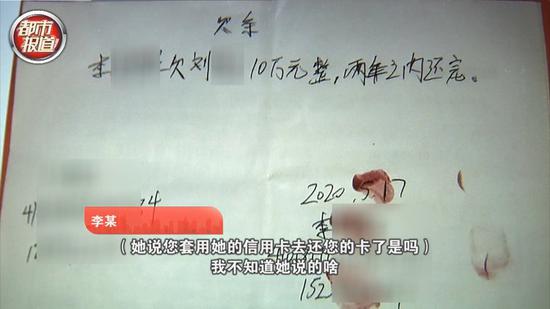 都市
报道
欠条
李 欠刘 10万元整，两年之内还完。
2020.5.17
李
152
李某
（她说您套用她的信用卡去还您的卡了是吗）
我不知道她说的啥